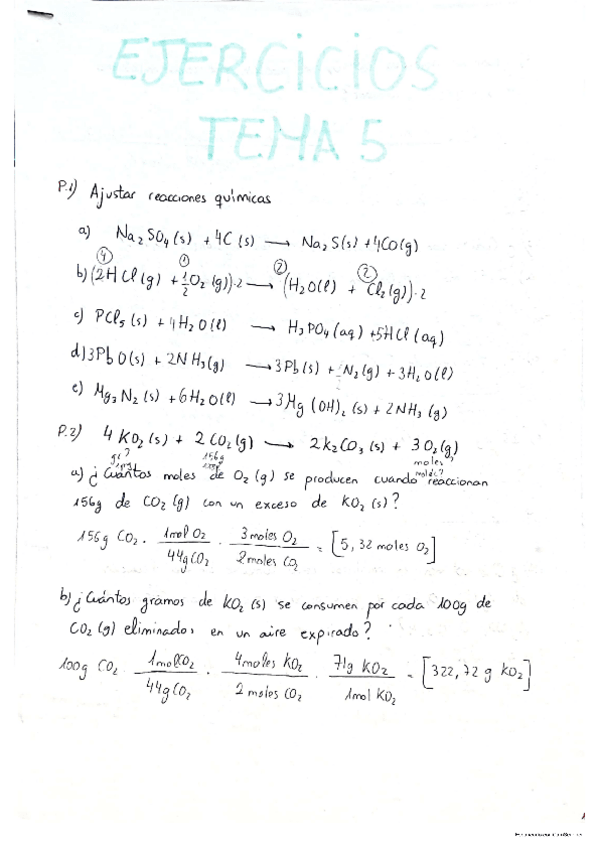 EJERCICIOS
TEMA 5
P.1) Ajustar reacciones químicas
a) Na₂SO₄(s) + 4C(s) → Na₂S(s) + 4CO(g)
④ ① ② ②
b) (2HCl(g) + 1/2 O₂(g))·2 → (H₂O(l) + Cl₂(g))·2
c) PCl₅(s) + 4H₂O(l) → H₃PO₄(aq) + 5HCl(aq)
d) 3PbO(s) + 2NH₃(g) → 3Pb(s) + N₂(g) + 3H₂O(l)
e) Mg₃N₂(s) + 6H₂O(l) → 3Mg(OH)₂(s) + 2NH₃(g)
P.2) 4KO₂(s) + 2CO₂(g) → 2K₂CO₃(s) + 3O₂(g)
g? 156g moles
a) ¿Cuántos moles de O₂(g) se producen cuando reaccionan
156g de CO₂(g) con un exceso de KO₂(s)?
156g CO₂ · 1mol O₂/44g CO₂ · 3moles O₂/2moles CO₂ = [5,32 moles O₂]
b) ¿Cuántos gramos de KO₂(s) se consumen por cada 100g de
CO₂(g) eliminados en un aire expirado?
100g CO₂ · 1mol CO₂/44g CO₂ · 4moles KO₂/2 moles CO₂ · 71g KO₂/1mol KO₂ = [322,72 g KO₂]